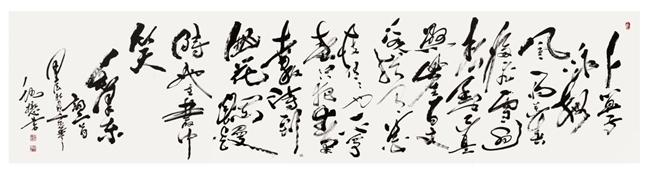 卜算子
咏梅
风雨送春
归飞雪迎
春到已是
悬崖百丈
冰犹有花枝
俏俏也不争
春只把春来
报待到
山花烂漫
时她在丛中
笑
毛泽东